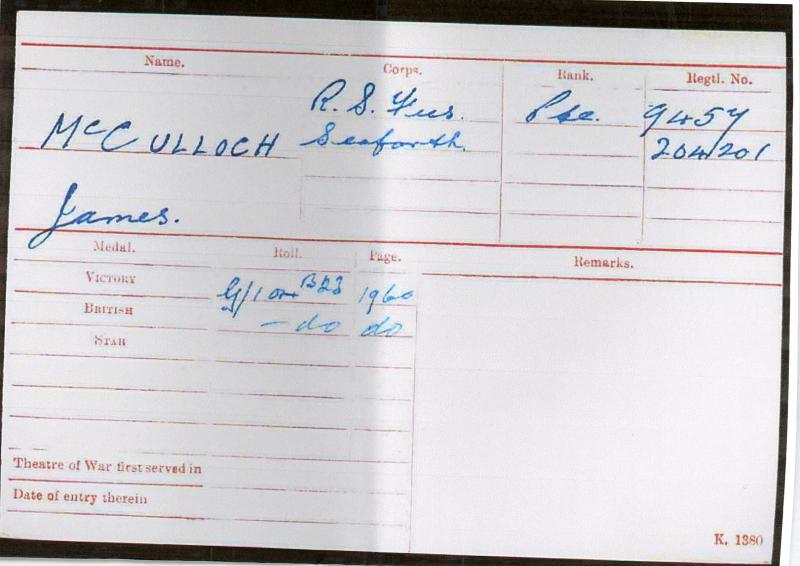 Name. Corps. Rank. Regtl. No.
McCULLOCH R. S. Fus. Pte. 9457
Seaforth. 204201
James.
Medal. Roll. Page. Remarks.
VICTORY G/1 B23 1960
BRITISH — do do
STAR
Theatre of War first served in
Date of entry therein
K. 1380